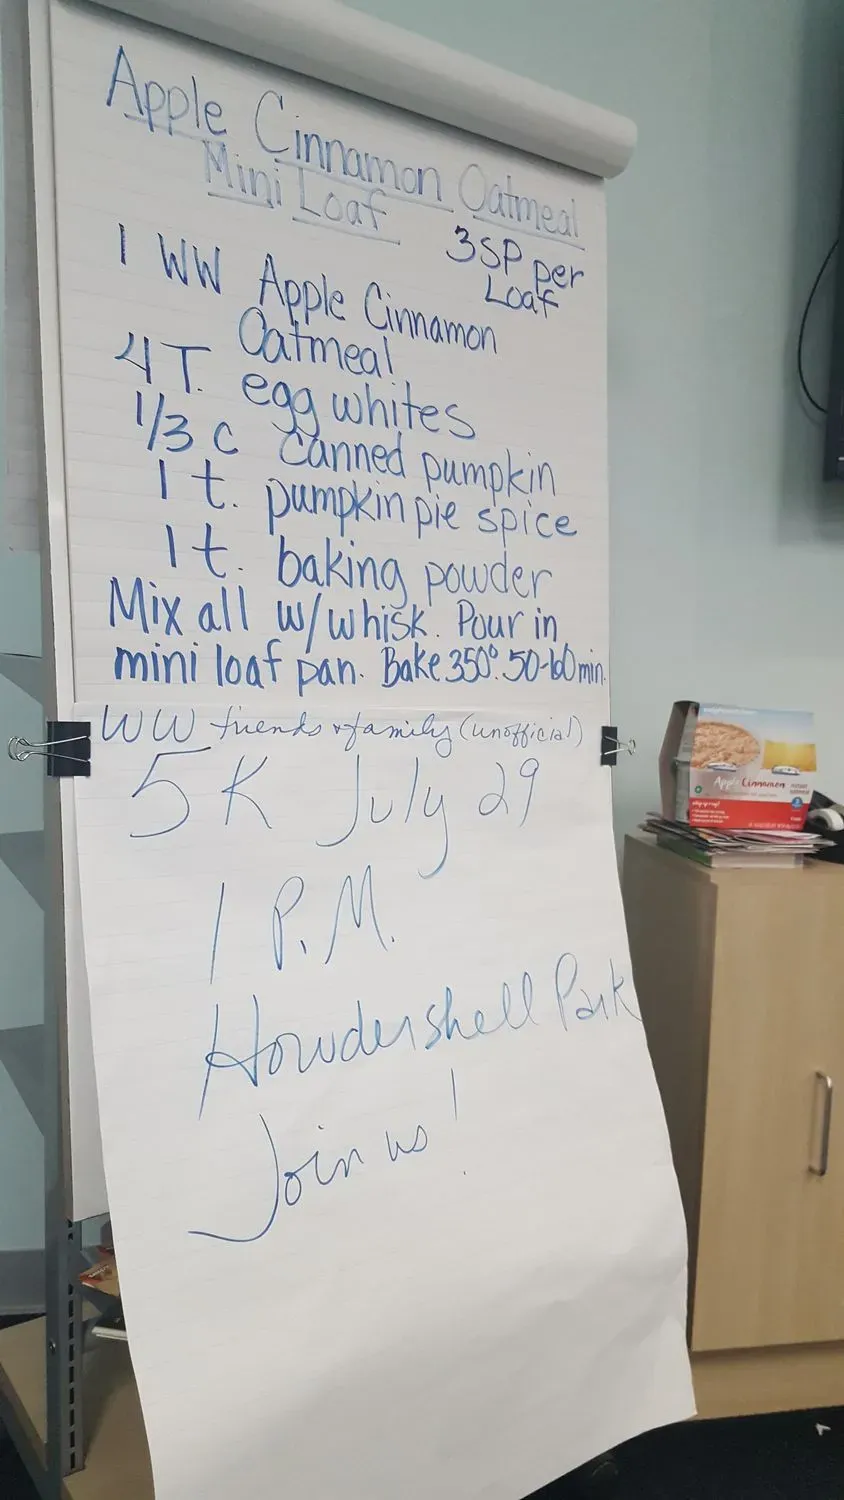 Apple Cinnamon Oatmeal
Mini Loaf
3 SP per
Loaf
1 WW Apple Cinnamon
Oatmeal
4 T. egg whites
1/3 c canned pumpkin
1 t. pumpkin pie spice
1 t. baking powder
Mix all w/whisk. Pour in
mini loaf pan. Bake 350°. 50-60 min.
WW friends & family (unofficial)
5K July 29
1 P.M.
Howdershell Park
Join us!
Apple Cinnamon